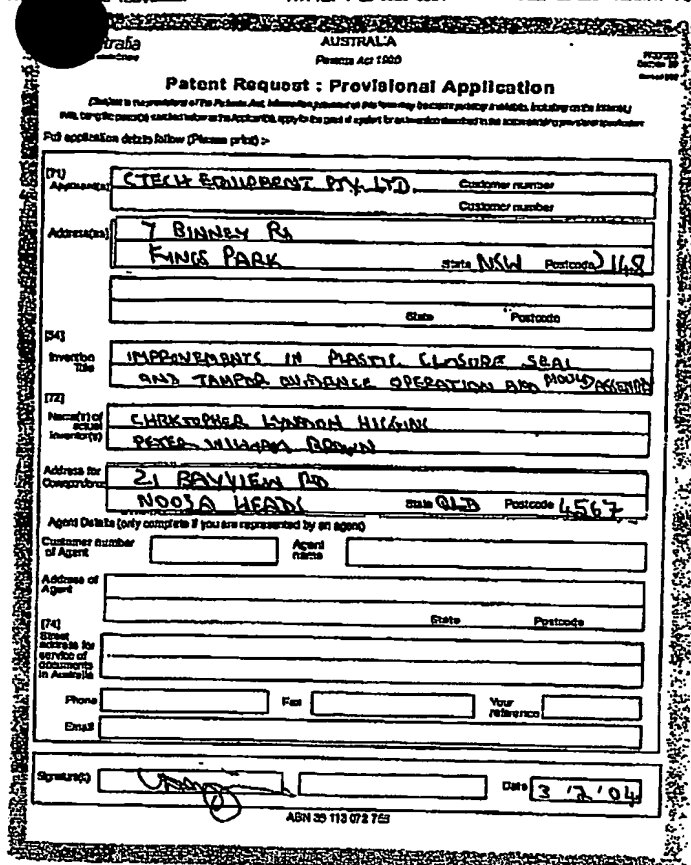 AUSTRALIA
Patents Act 1990
Patent Request : Provisional Application
For application details follow (Please print) :-
[71]
Applicant(s) CTECH EQUIPMENT PTY. LTD. Customer number
Customer number
Address(es) 7 BINNEY RD
KINGS PARK State NSW Postcode 2148
State Postcode
[54]
Invention Title IMPROVEMENTS IN PLASTIC CLOSURE SEAL
AND TAMPER EVIDENCE OPERATION AND MOULD ASSEMBLY
[72]
Name(s) of actual inventor(s) CHRISTOPHER LYNDON HIGGINS
PETER WILLIAM BROWN
Address for Correspondence 21 BAYVIEW RD
NOOSA HEADS State QLD Postcode 4567
Agent Details (only complete if you are represented by an agent)
Customer number of Agent Agent name
Address of Agent
State Postcode
[74]
Street address for service of documents in Australia
Phone Fax Your reference
Email
Signature(s) Date 3 '2 '04
ABN 38 113 072 755